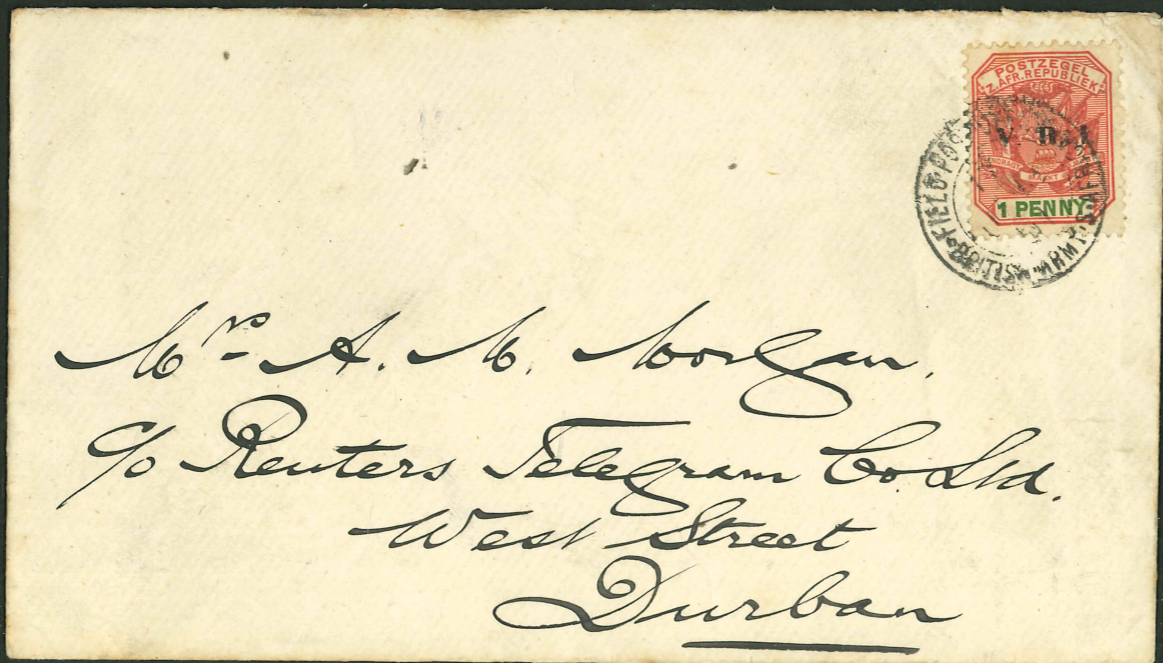 POSTZEGEL
Z. AFR. REPUBLIEK
V. R. I
EENDRAGT MAAKT MAGT
1 PENNY
FIELD POST
BRITISH ARMY S. AFRICA
Mr. A. M. Morgan.
c/o Reuters Telegram Co. Ltd.
West Street
Durban